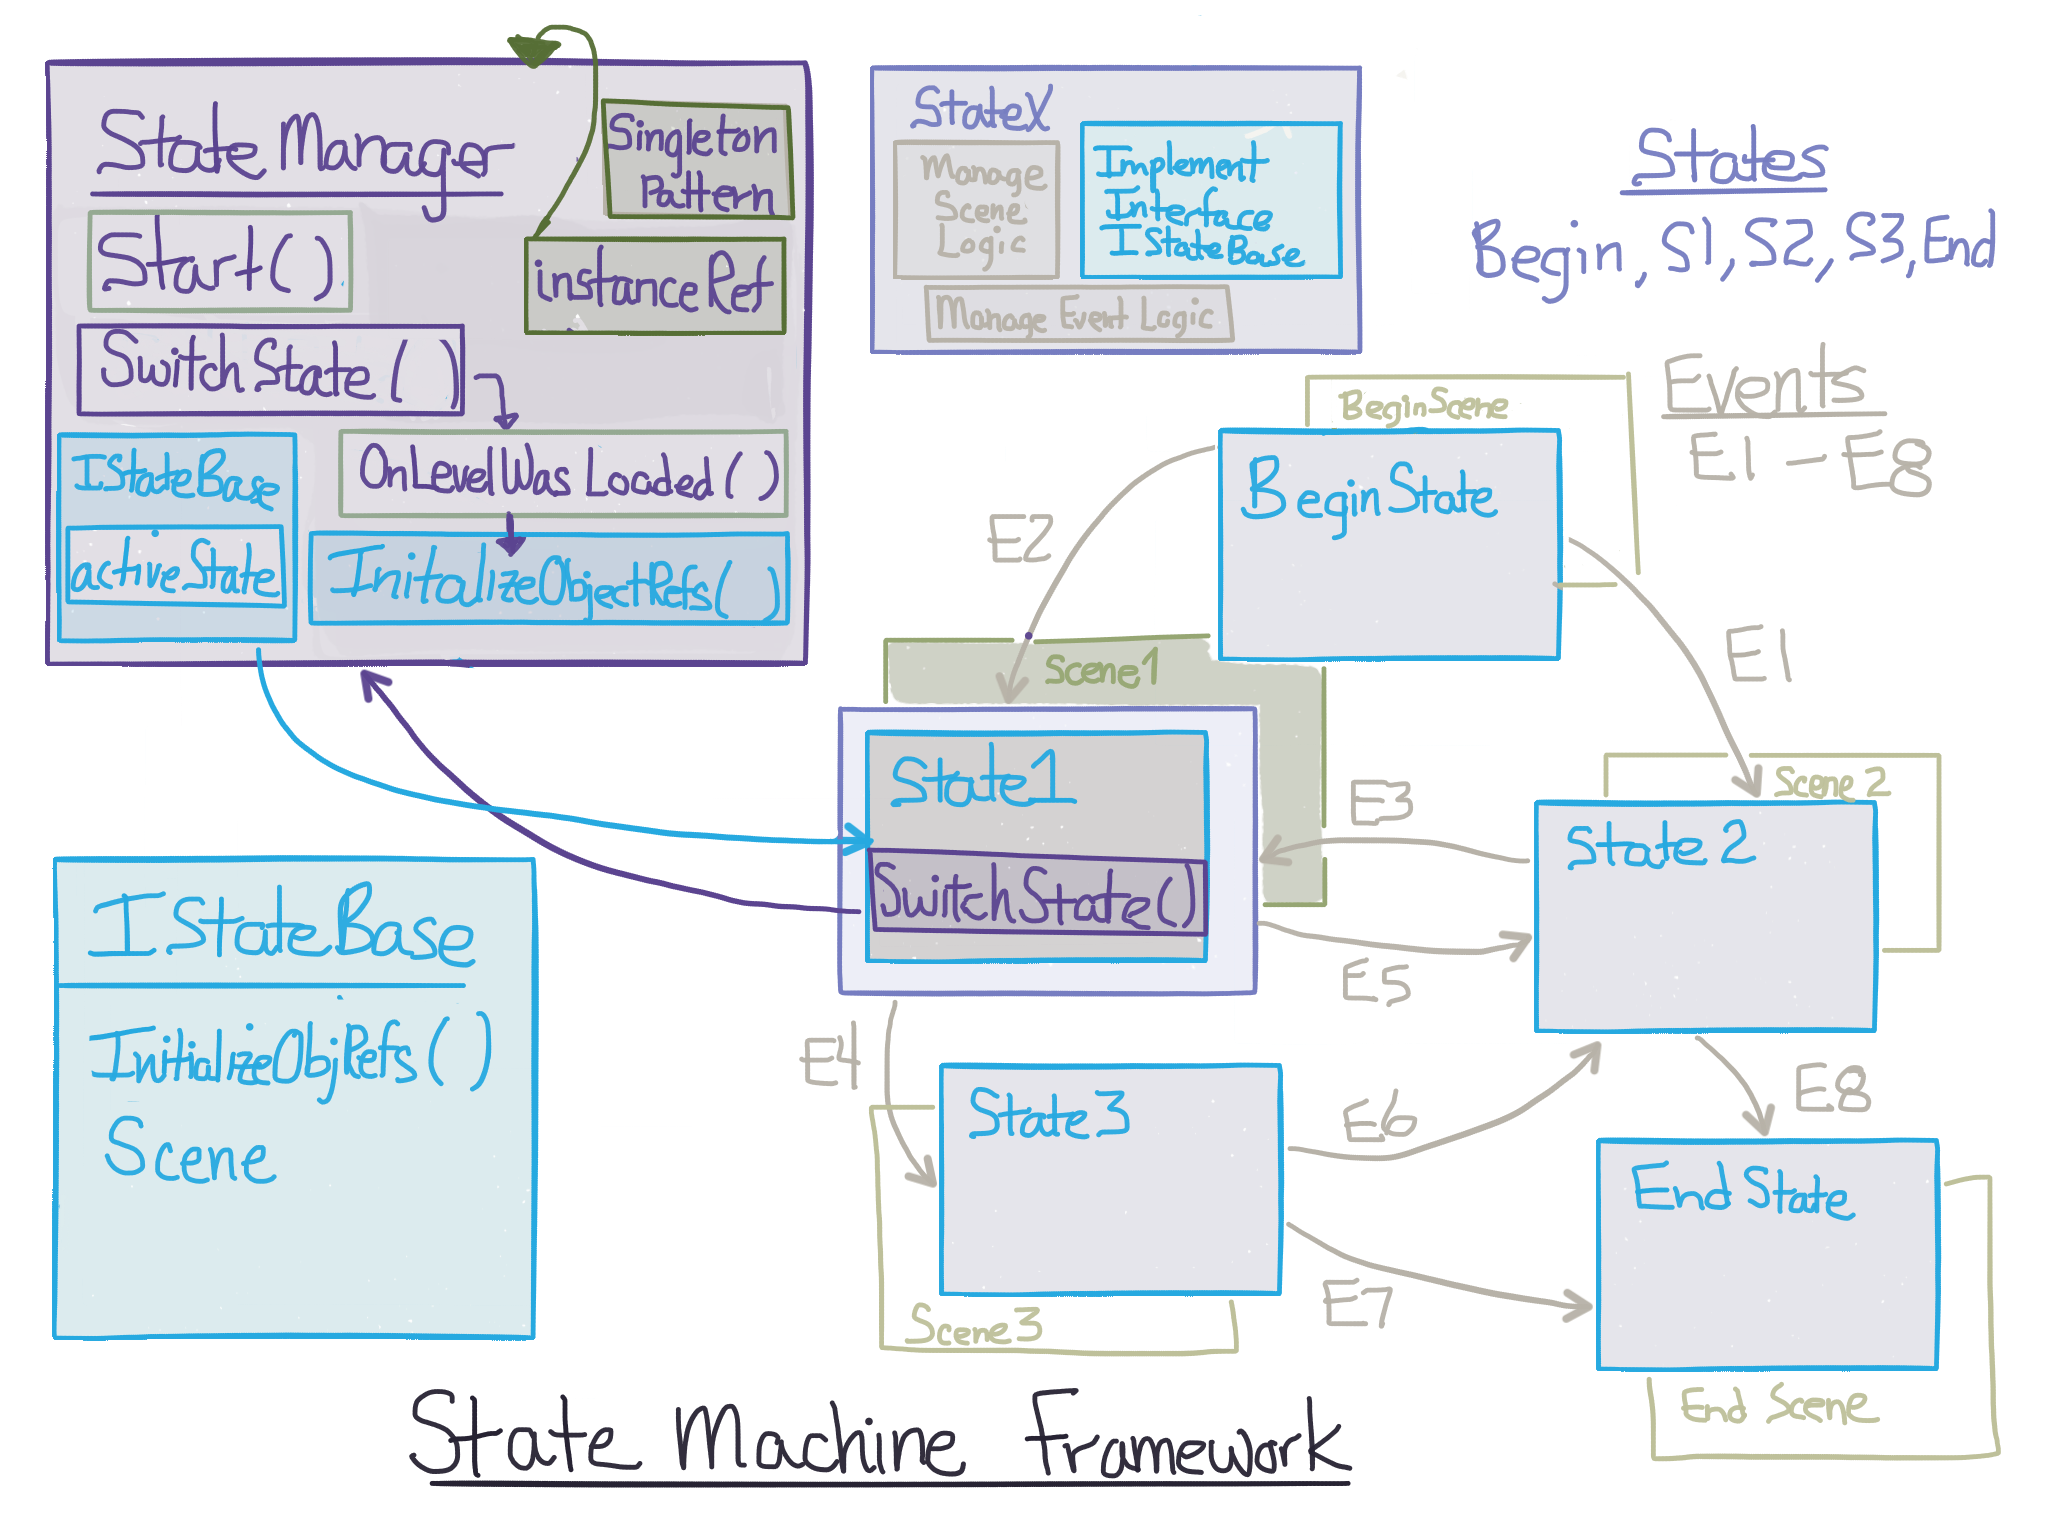 State Manager
Singleton
Pattern
Start()
instanceRef
SwitchState()
OnLevelWasLoaded()
IStateBase
activeState
InitalizeObjectRefs()
StateX
Manage
Scene
Logic
Implement
Interface
IStateBase
Manage Event Logic
States
Begin, S1, S2, S3, End
Events
E1 - E8
BeginScene
BeginState
E2
E1
Scene1
State1
SwitchState()
Scene 2
State 2
E3
E5
IStateBase
InitializeObjRefs()
Scene
E4
State3
Scene3
E6
E8
E7
End State
End Scene
State Machine Framework